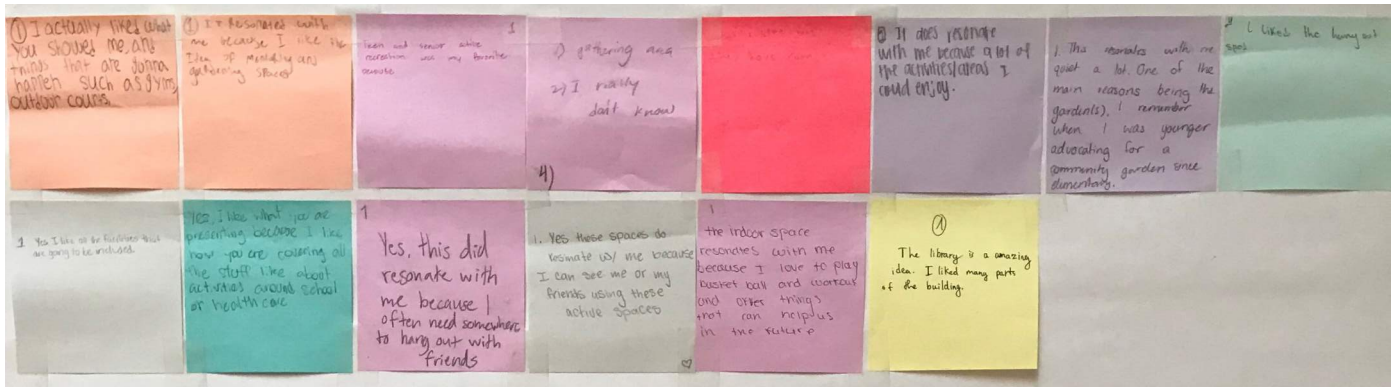 ① I actually liked what
you showed me and
things that are gonna
happen such as gyms,
outdoor courts.
① It Resonated with
me because I like the
Idea of
gathering spaces
1
teen and senior active
recreation was my favorite
1) gathering area
2) I really
don't know
4)
② It does resonate
with me because a lot of
the activities/areas I
could enjoy.
1. This resonates with me
quiet a lot. One of the
main reasons being the
garden(s), I remember
when I was younger
advocating for a
community garden since
elementary.
I likes the hang out
spot
1 Yes I like all the
that
are going to be included.
Yes, I like what you are
presenting because I like
how you are covering all
the stuff like about
activities around school
or health care
1
Yes, this did
resonate with
me because I
often need somewhere
to hang out with
friends
1. Yes these spaces do
resinate w/ me because
I can see me or my
friends using these
active spaces
1
the indoor space
resonates with me
because I love to play
basket ball and workout
and other things
that can help us
in the future
①
The library is a amazing
idea. I liked many parts
of the building.